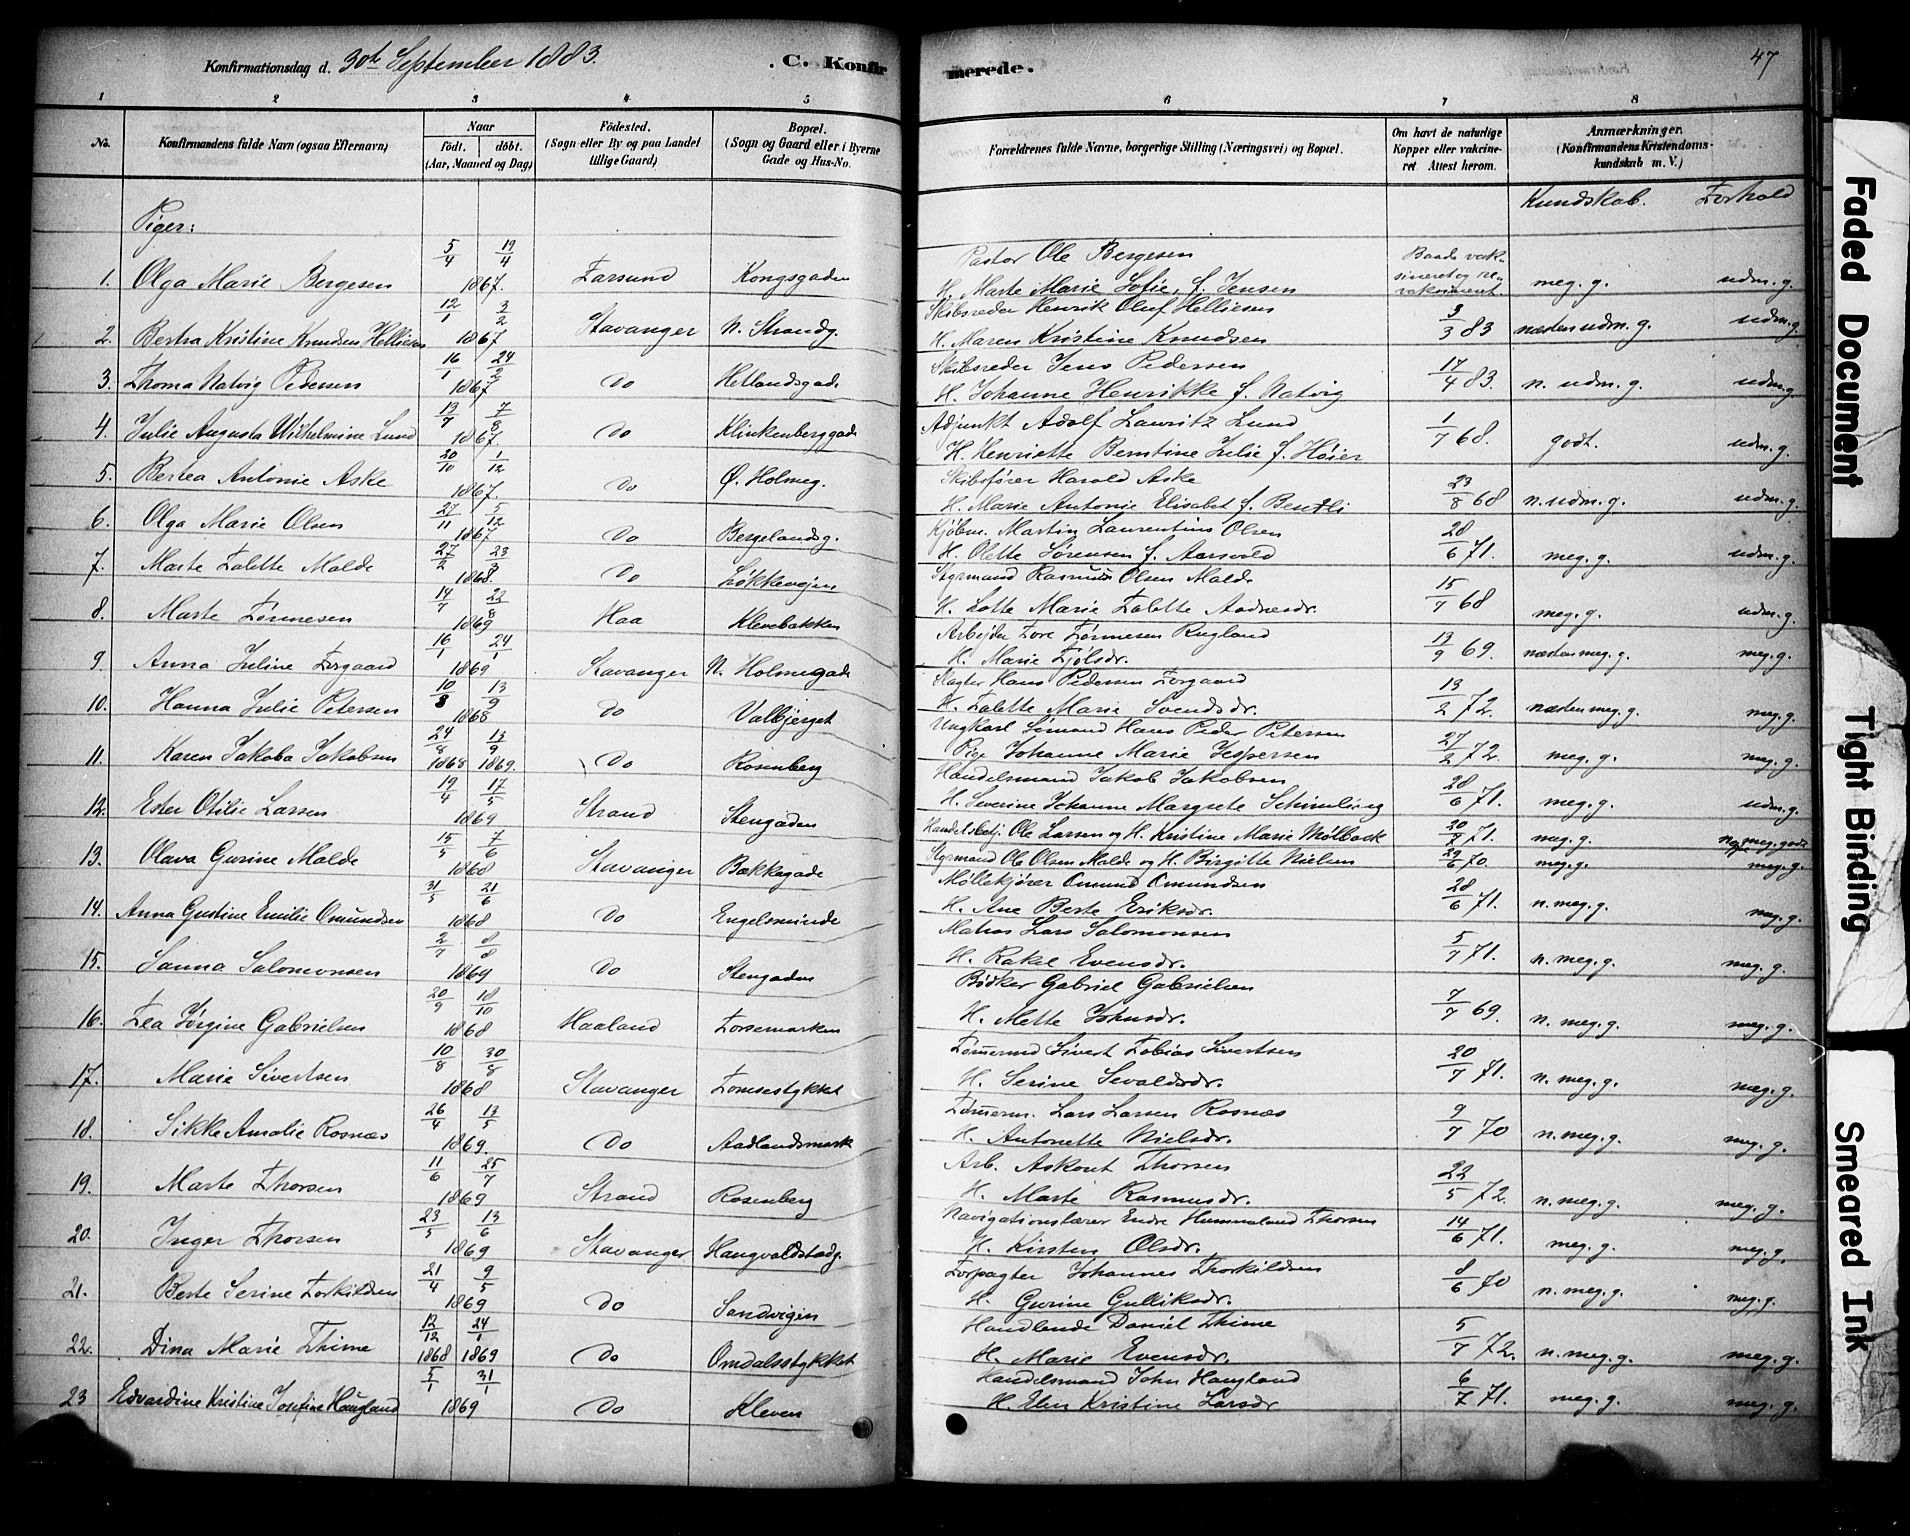 Konfirmationsdag d. 30te September 1883. C. Konfirmerede. 47
1 2 3 4 5 6 7 8
No. Konfirmandens fulde Navn (ogsaa Efternavn) Naar født. døbt. (Aar, Maaned og Dag) Fødested. (Sogn eller By og paa Landet tillige Gaard) Bopæl. (Sogn og Gaard eller i Byerne Gade og Hus-No. Forældrenes fulde Navne, borgerlige Stilling (Næringsvei) og Bopæl. Om havt de naturlige Kopper eller vakcineret Attest herom. Anmærkninger. (Konfirmandens Kristendomskundskab m. V.)
Piger: Kundskab. Forhold
1. Olga Marie Bergesen 5/4 19/4 1867. Farsund Kongsgaden Pastor Ole Bergesen H. Marte Marie Sofie, f. Jensen Baade vaksineret og revaksineret. meg. g. udm. g.
2. Bertha Kristine Knudsen Helliesen 12/1 3/2 1867 Stavanger N. Strandg. Skibsreder Henrik Oluf Helliesen H. Maren Kristine Knudsen 3/3 83 næsten udm. g. udm. g.
3. Thoma Natvig Pedersen 16/1 24/2 1867 Do Hetlandsgade Skibsreder Jens Pedersen H. Johanne Henrikke f. Natvig 17/4 83. n. udm. g. udm. g.
4. Julie Augusta Wilhelmine Lund 13/7 7/8 1867. Do Klinkenberggade Adjunkt Adolf Lauritz Lund H. Henriette Berntine Julie f. Høier 1/7 68. godt. udm. g.
5. Bertea Antonie Aske 20/10 1/12 1867. Do Ø. Holmeg. Skibsfører Harald Aske H. Marie Antonie Elisabet f. 23/8 68 n. udm. g. udm. g.
6. Olga Marie Olsen 27/11 5/12 1867 Do Bergelandsg. Kjøbm. Martin Laurentius Olsen H. Olette Sørensen f. Aarsvold 28/6 71. meg. g. udm. g.
7. Marte Talette Malde 27/2 23/3 1868. Do Løkkevejen Styrmand Rasmus Olsen Malde H. Lotte Marie Talette Aadnesdr. 15/7 68 meg. g. udm. g.
8. Marte Tønnesen 14/7 22/8 1869 Haa Klevebakken Arbejder Tore Tønnesen Rugland H. Marie Tjølsdr. 13/9 69. næsten meg. g. meg. g.
9. Anna Juline Torgaard 16/1 24/1 1869 Stavanger N. Holmegade Slagter Hans Pedersen Torgaard H. Talette Marie Svendsdr. 13/2 72. næsten meg. g. meg. g.
10. Hanna Julie Petersen 10/8 13/9 1868 Do Valbjerget Ungkarl Sømand Hans Peder Petersen Pige Johanne Marie Jespersen 27/2 72. meg. g. meg. g.
11. Karen Jakoba Jakobsen 24/8 1868 13/9 1869. Do Rosenberg Handelsmand Jakob Jakobsen H. Severine Johanne Margrete 28/6 71. meg. g. udm. g.
12. Ester Otilie Larsen 19/4 17/5 1869 Strand Stengaden Handelsbetj. Ole Larsen og H. Kristine Marie Mølback 20/7 71. meg. g. meg. godt
13. Olava Gurine Malde 15/5 7/6 1868 Stavanger Bakkegade Styrmand Ole Olsen Malde og H. Birgitte Nielsen 29/6 70. meg. g. meg. g.
14. Anna Gustine Emilie Omundsen 31/5 21/6 1868 Do Engelsminde Møllekjører Omund Omundsen H. Ane Berte Eriksdr. 28/6 71. n. meg. g. meg. g.
15. Sanna Salomonsen 2/7 8/8 1869 Do Stengaden Matros Lars Salomonsen H. Rakel Evensdr. 5/7 71. n. meg. g. meg. g.
16. Lea Jørgine Gabrielsen 20/9 18/10 1868 Haaland Torsemarken Bødker Gabriel Gabrielsen H. Mette Johnsdr. 7/7 69. n. meg. g. meg. g.
17. Marie Sivertsen 10/8 30/8 1868 Stavanger Tomsestykket Tømmermd Sivert Tobias Sivertsen H. Serine Sevaldsdr. 20/7 71. n. meg. g. meg. g.
18. Sikke Amalie Rosnæs 26/4 13/5 1869. Do Aadlandsmark Tømmerm. Lars Larsen Rosnæs H. Antonette Nielsdr. 9/7 70 n. meg. g. meg. g.
19. Marte Thorsen 11/6 25/7 1869 Strand Rosenberg Arb. Askout Thorsen H. Marte Rasmusdr. 22/5 72. n. meg. g. meg. g.
20. Inger Thorsen 23/5 13/6 1869 Stavanger Navigationslærer Endre Hummeland Thorsen H. Kirsten Olsdr. 14/6 71. meg. g. meg. g.
21. Berte Serine Torkildsen 21/4 9/5 1869 Do Sandvigen Forpagter Johannes Thorkildsen H. Gurine Gulliksdr. 8/6 70 n. meg. g. meg. g.
22. Dina Marie Thime 12/12 1868 24/1 1869 Do Omdalsstykket Handlende Daniel Thime H. Marie Evensdr. 5/7 72. n. meg. g. meg. g.
23 Edvardine Kristine Josefine Haugland 5/1 31/1 1869 Do Kleven Handelsmand John Haugland H. Elen Kristine Larsdr 6/7 71. meg. g. meg. g.
Faded Document
Tight Binding
Smeared Ink